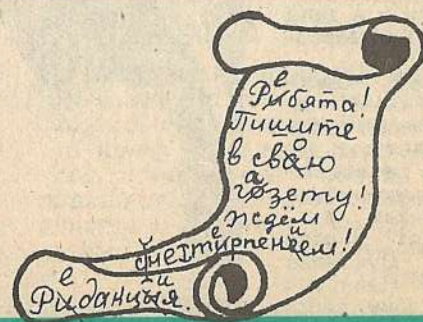 Ребята!
Пишите
в свою
газету!
Ждём
с нетерпением!
Редакция.